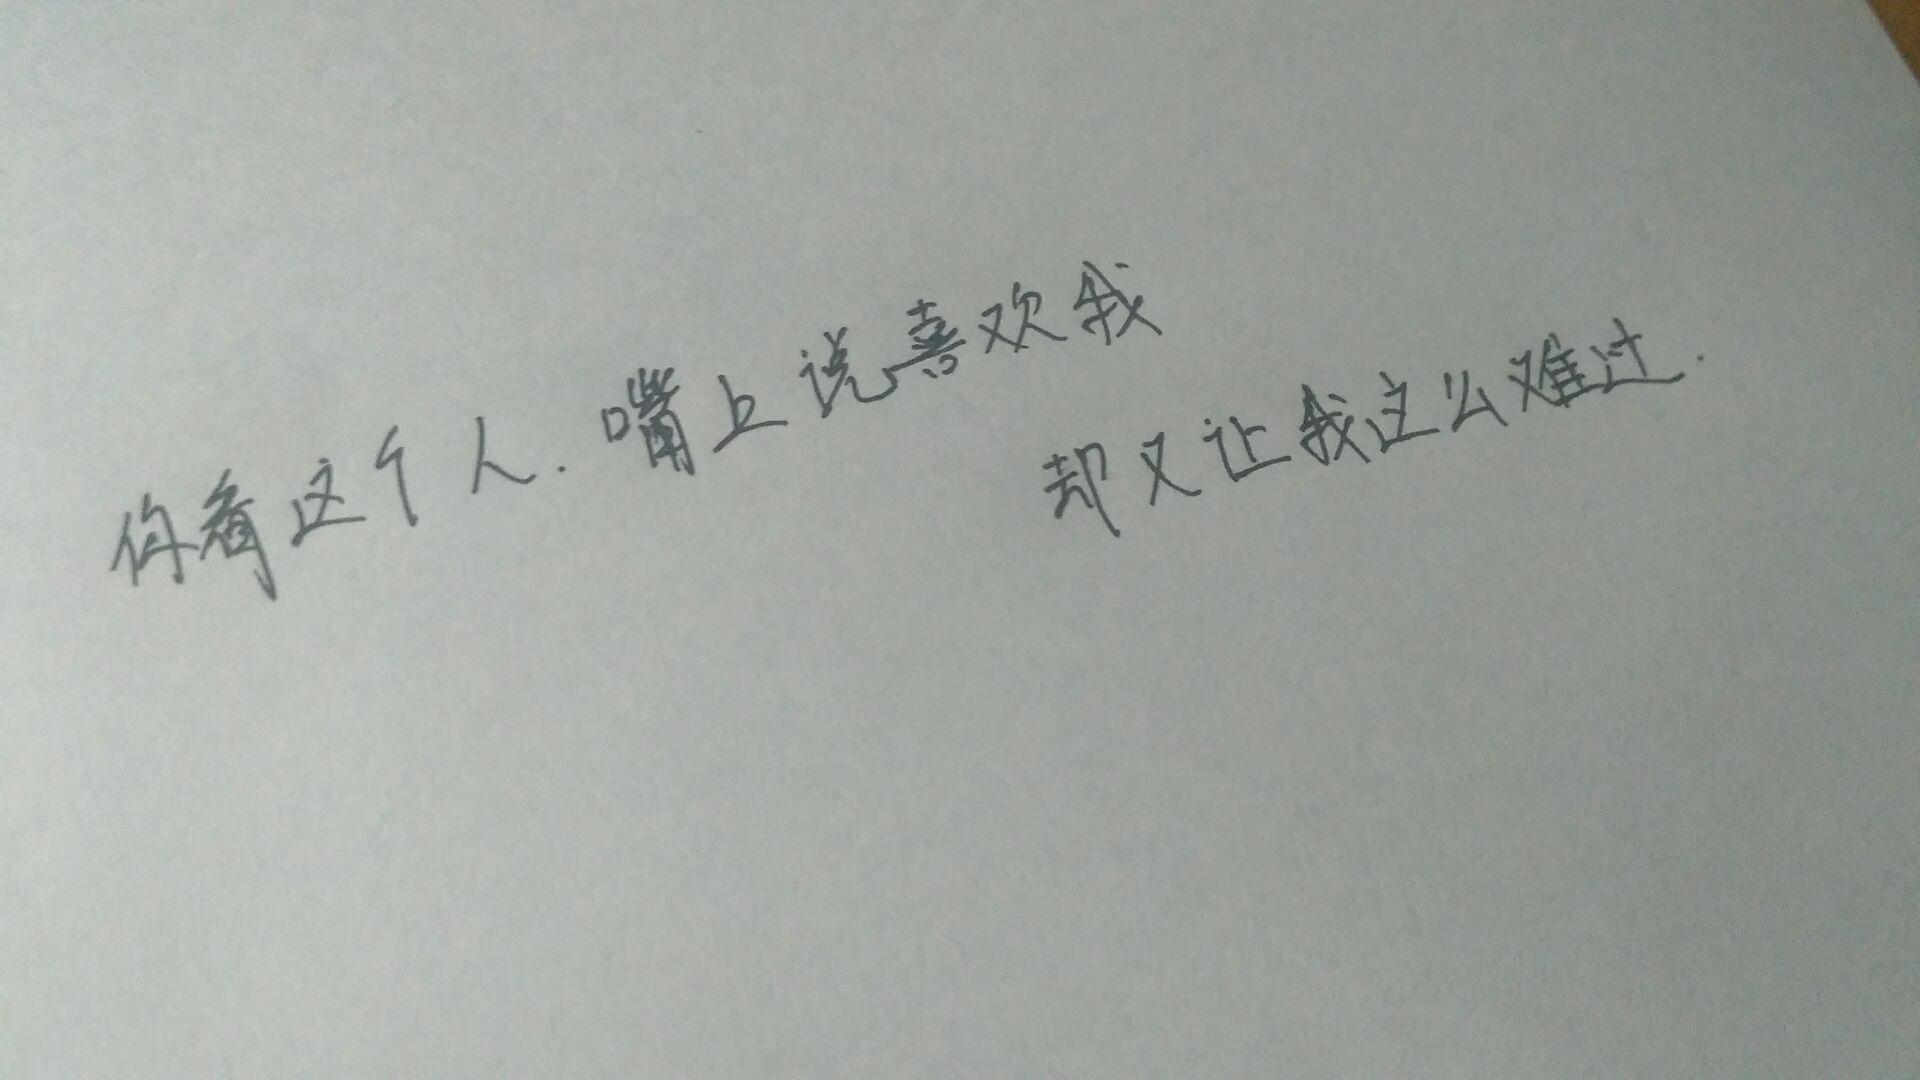 你看这个人.嘴上说喜欢我
却又让我这么难过.